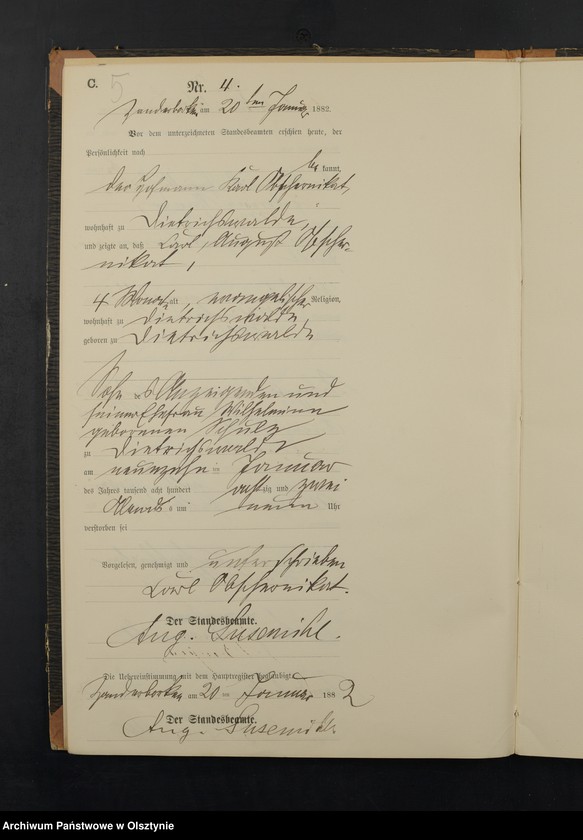 C. 5
Nr. 4.
am 20ten Januar 1882.
Vor dem unterzeichneten Standesbeamten erschien heute, der
Persönlichkeit nach
bekannt,
der Karl Obschernikat,
wohnhaft zu Dietrichswalde,
und zeigte an, daß Carl, August Obscher-
nikat,
4 Monat alt, evangelischer Religion,
wohnhaft zu Dietrichswalde
geboren zu Dietrichswalde
Sohn des Anzeigenden und
seiner Ehefrau Wilhelmine
geborenen Schulz
zu Dietrichswalde
am neunzehn ten Januar
des Jahres tausend acht hundert achtzig und zwei
Abends um neun Uhr
verstorben sei
Vorgelesen, genehmigt und unterschrieben
Carl Obschernikat.
Der Standesbeamte.
Aug. Susemihl.
Die Uebereinstimmung mit dem Hauptregister beglaubigt
am 20 ten Januar 1882
Der Standesbeamte.
Aug. Susemihl.
Archiwum Państwowe w Olsztynie